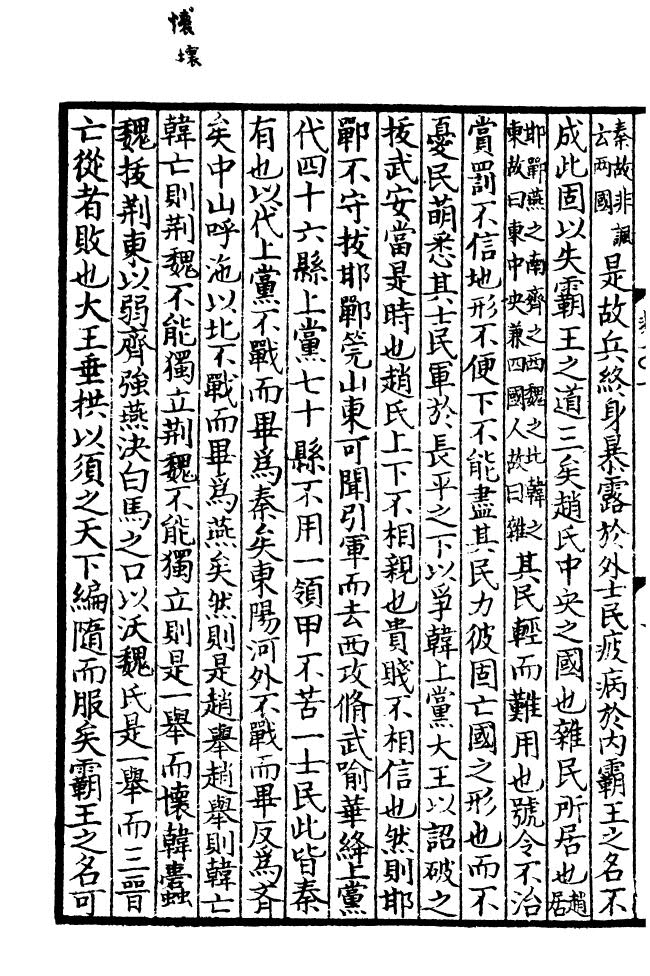 懷
壞
秦故非諷云兩國是故兵終身暴露於外士民疲病於内霸王之名不
成此固以失霸王之道三矣趙氏中央之國也雜民所居也趙居
邯鄲燕之南齊之西魏之北韓之東故曰東中央兼四國人故曰雜其民輕而難用也號令不治
賞罰不信地形不便下不能盡其民力彼固亡國之形也而不
憂民萌悉其士民軍於長平之下以爭韓上黨大王以詔破之
拔武安當是時也趙氏上下不相親也貴賤不相信也然則邯
鄲不守拔邯鄲筦山東可聞引軍而去西攻脩武喻華絳上黨
代四十六縣上黨七十縣不用一領甲不苦一士民此皆秦
有也以代上黨不戰而畢為秦矣東陽河外不戰而畢反為齊
矣中山呼沲以北不戰而畢為燕矣然則是趙舉趙舉則韓亡
韓亡則荆魏不能獨立荆魏不能獨立則是一舉而懷韓蠹
魏拔荆東以弱齊強燕決白馬之口以沃魏氏是一舉而三晉
亡從者敗也大王垂拱以須之天下編隨而服矣霸王之名可